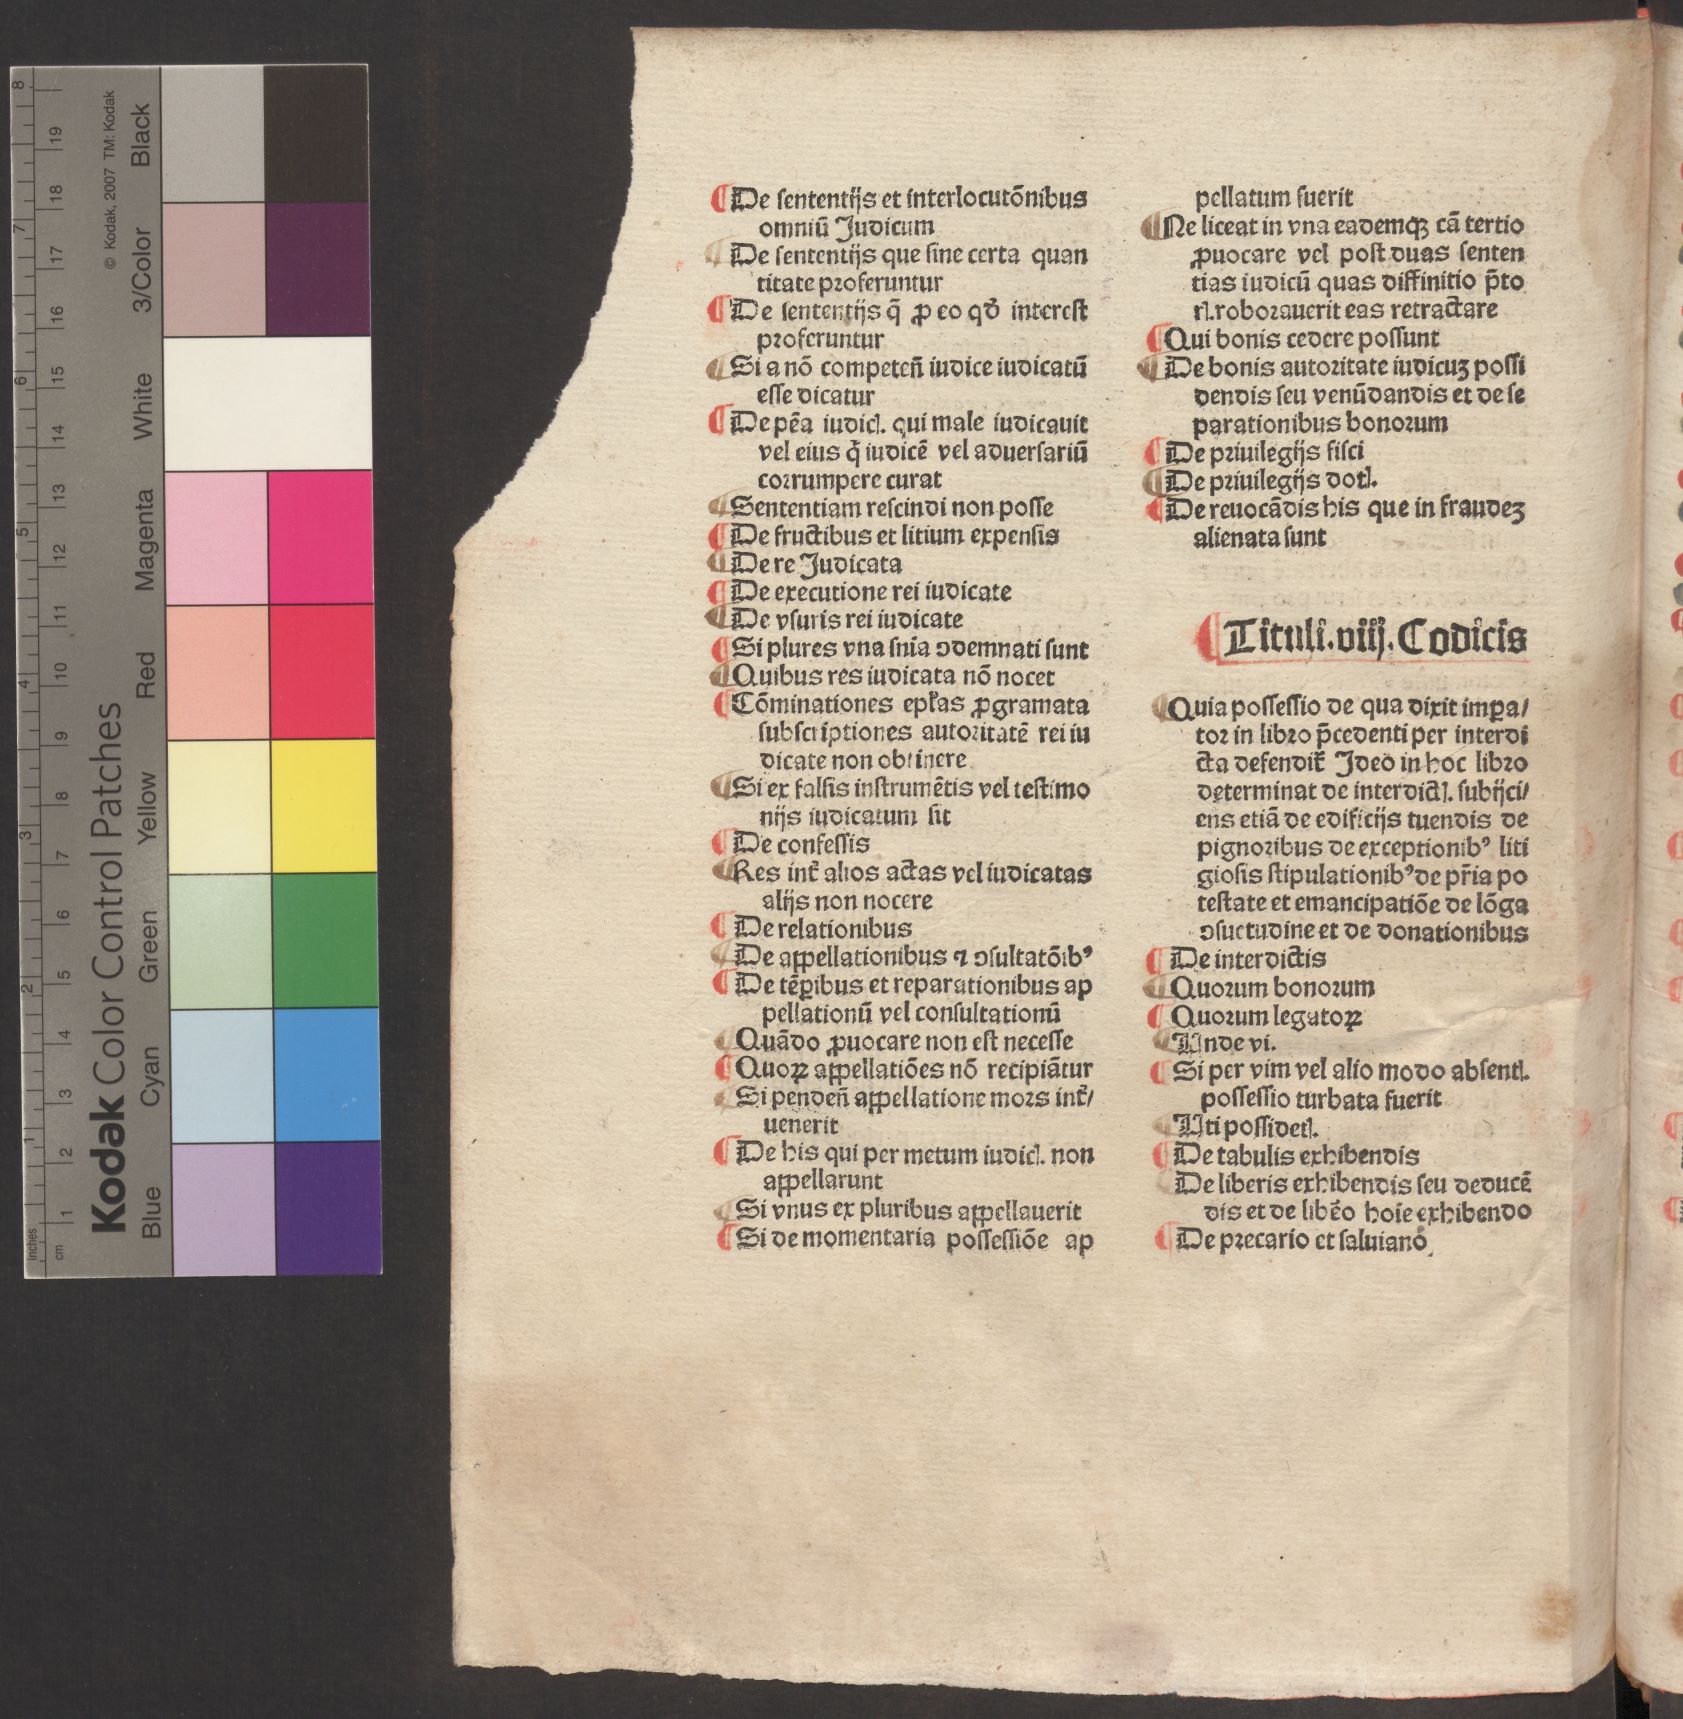 © Kodak, 2007 TM: Kodak
Kodak Color Control Patches
Blue Cyan Green Yellow Red Magenta White 3/Color Black
inches 1 2 3 4 5 6 7 8
cm 1 2 3 4 5 6 7 8 9 10 11 12 13 14 15 16 17 18 19
¶De sententijs et interlocutōnibus
omniū Judicum
¶De sententijs que sine certa quan
titate proferuntur
¶De sententijs q̄ ꝓ eo qđ interest
proferuntur
¶Si a nō competeñ iudice iudicatū
esse dicatur
¶De pēa iudicꝭ. qui male iudicauit
vel eius q̇ iudicē vel aduersariū
corrumpere curat
¶Sententiam rescindi non posse
¶De fructibus et litium expensis
¶De re Judicata
¶De executione rei iudicate
¶De vsuris rei iudicate
¶Si plures vna snīa ꝯdemnati sunt
¶Quibus res iudicata nō nocet
¶Cōminationes epl̄as ꝓgramata
subscriptiones autoritatē rei iu
dicate non obtinere
¶Si ex falsis instrumētis vel testimo
nijs iudicatum sit
¶De confessis
¶Res int̄ alios actas vel iudicatas
alijs non nocere
¶De relationibus
¶De appellationibus ⁊ ꝯsultatōibꝰ
¶De tēꝑibus et reparationibus ap
pellationū vel consultationū
¶Quādo ꝓuocare non est necesse
¶Quoꝝ appellatiōes nō recipiātur
¶Si pendeñ appellatione mors int̄/
uenerit
¶De his qui per metum iudicꝭ. non
appellarunt
¶Si vnus ex pluribus appellauerit
¶Si de momentaria possessiōe ap
pellatum fuerit
¶Ne liceat in vna eademqꝫ cā tertio
ꝓuocare vel post duas senten
tias iudicū quas diffinitio p̄to
rꝭ. roborauerit eas retractare
¶Qui bonis cedere possunt
¶De bonis autoritate iudicuꝫ possi
dendis seu venūdandis et de se
parationibus bonorum
¶De priuilegijs fisci
¶De priuilegijs dotꝭ.
¶De reuocādis his que in fraudeꝫ
alienata sunt
¶Tituli.viij.Codicis
¶Quia possessio de qua dixit imꝑa/
tor in libro p̄cedenti per interdi
cta defendit̄ Jdeo in hoc libro
determinat de interdictꝭ. subijci/
ens etiā de edificijs tuendis de
pignoribus de exceptionibꝰ liti
giosis stipulationibꝰ de pr̄ia po
testate et emancipatiōe de lōga
ꝯsuetudine et de donationibus
¶De interdictis
¶Quorum bonorum
¶Quorum legatoꝝ
¶Unde vi.
¶Si per vim vel alio modo absentꝭ.
possessio turbata fuerit
¶Uti possidetꝭ.
¶De tabulis exhibendis
¶De liberis exhibendis seu deducē
dis et de libēo hoie exhibendo
¶De precario et saluiano